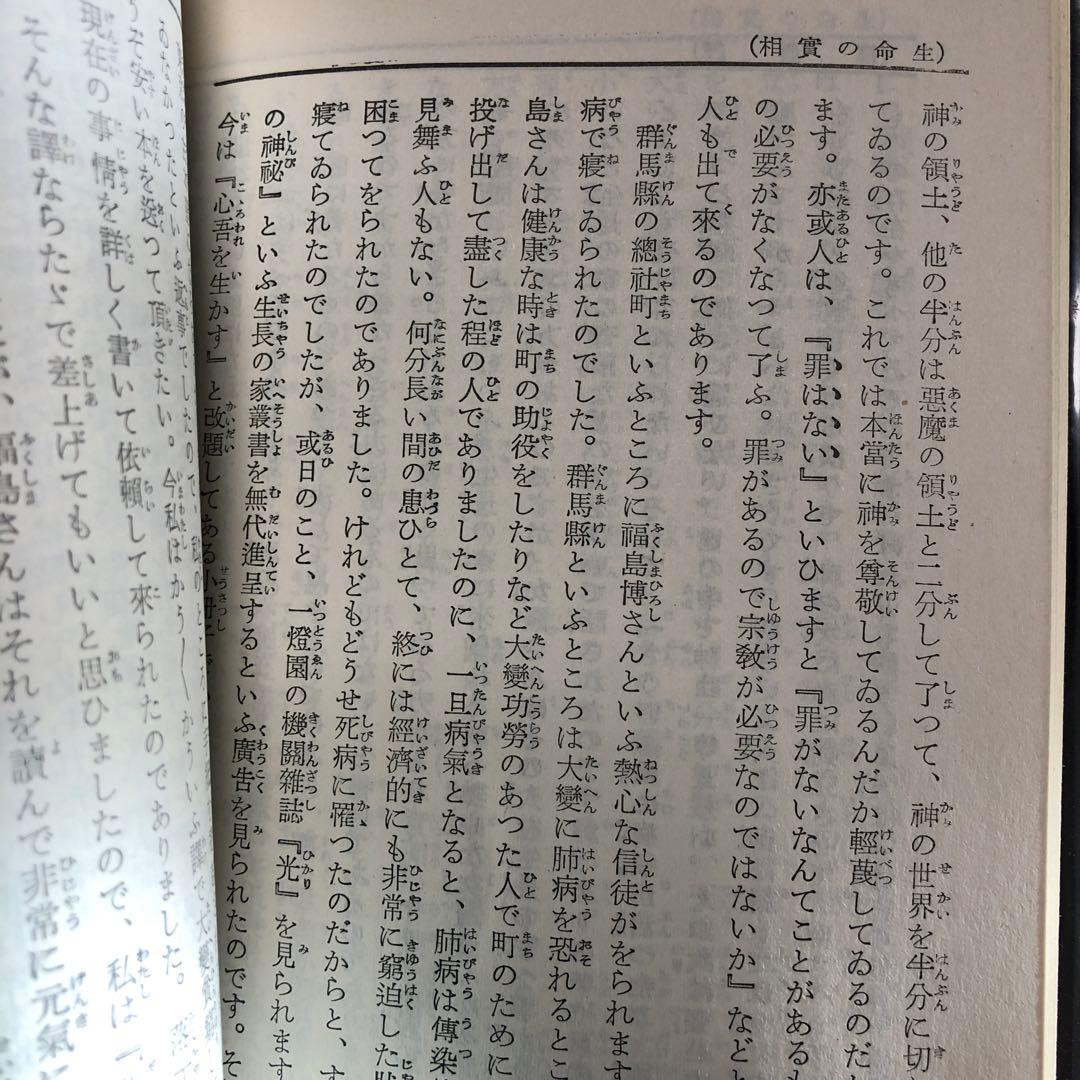 (生命の實相)
神の領土、他の半分は惡魔の領土と二分して了つて、神の世界を半分に切
てゐるのです。これでは本當に神を尊敬してゐるんだか輕蔑してゐるのだ
ます。亦或人は、『罪はない』といひますと『罪がないなんてことがあるも
の必要がなくなつて了ふ。罪があるので宗敎が必要なのではないか』などと
人も出て來るのであります。
群馬縣の總社町といふところに福島博さんといふ熱心な信徒がをられます
病で寢てゐられたのでした。群馬縣といふところは大變に肺病を恐れるとこ
島さんは健康な時は町の助役をしたりなど大變功勞のあつた人で町のために
投げ出して盡した程の人でありましたのに、一旦病氣となると、肺病は傳染
見舞ふ人もない。何分長い間の患ひとて、終には經濟的にも非常に窮迫した
困つてをられたのでありました。けれどもどうせ死病に罹つたのだからと、す
寢てゐられたのでしたが、或日のこと、一燈園の機關雜誌『光』を見られます
の神祕』といふ生長の家叢書を無代進呈するといふ廣告を見られたのです。そ
今は『心吾を生かす』と改題してある小册子
なかつたといふ返事でしたので、
うぞ安い本を送つて頂きたい。今私はかう〳〵かういふ譯で大變
現在の事情を詳しく書いて依賴して來られたのでありました。
そんな譯ならたゞで差上げてもいいと思ひましたので、私は『
福島さんはそれを讀んで非常に元氣